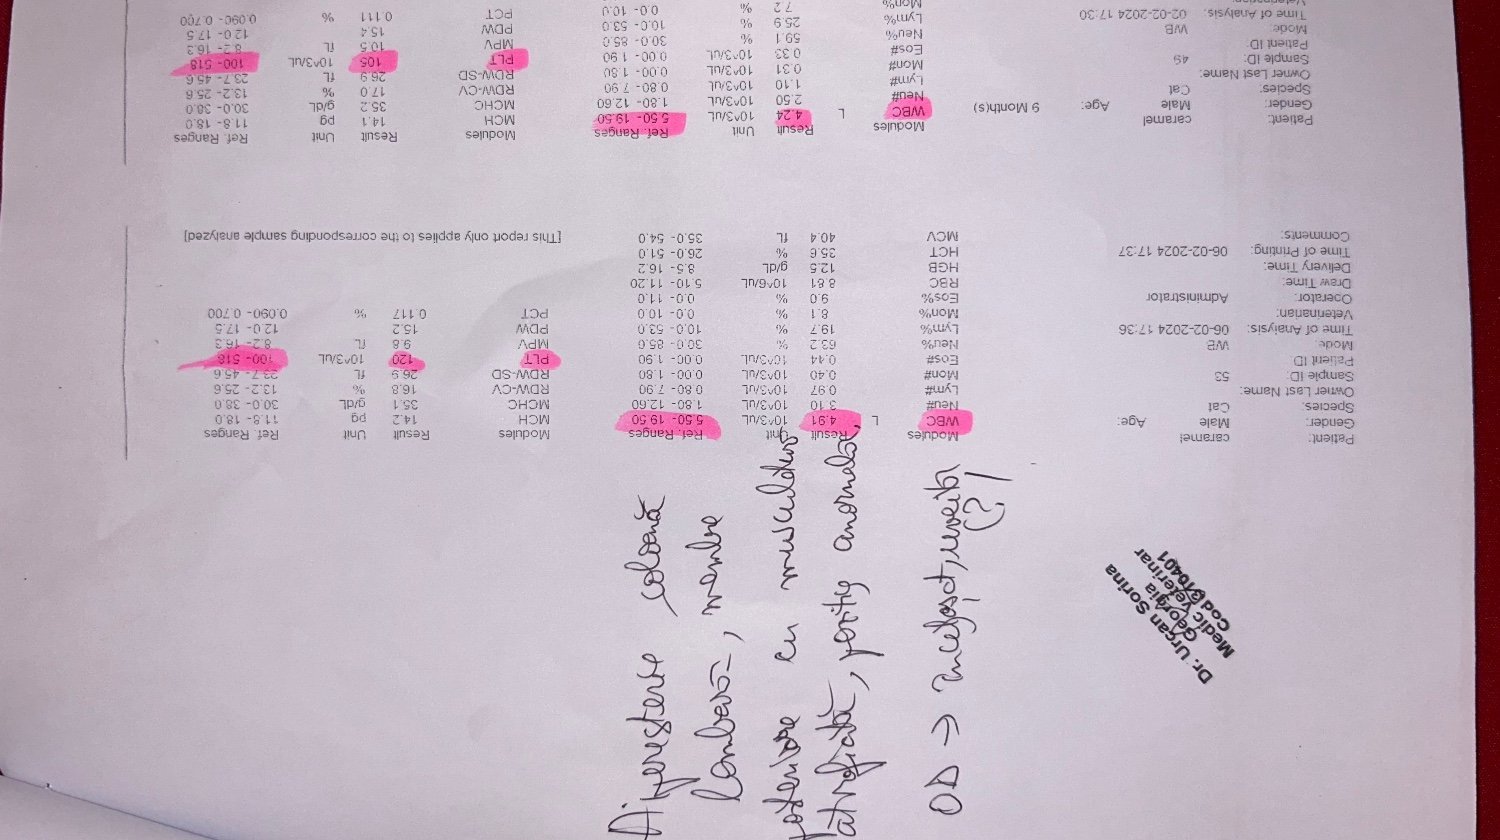 Dr. Urcan Sorina
Georgia
Medic Veterinar
Hiperestezie coloană
lombară, membre
posterioare cu musculatura
atrofiată, poziție anormală,
OD → încețoșat, uveită
(?)
Patient: caramel Modules Result Unit Ref. Ranges Modules Result Unit Ref. Ranges
Gender: Male Age: WBC L 4.91 10^3/uL 5.50- 19.50 MCH 14.2 pg 11.8- 18.0
Species: Cat Neu# 3.10 10^3/uL 1.80- 12.60 MCHC 35.1 g/dL 30.0- 38.0
Owner Last Name: Lym# 0.97 10^3/uL 0.80- 7.90 RDW-CV 16.8 % 13.2- 25.6
Sample ID: 53 Mon# 0.40 10^3/uL 0.00- 1.80 RDW-SD 26.9 fL 23.7- 45.6
Patient ID Eos# 0.44 10^3/uL 0.00- 1.90 PLT 120 10^3/uL 100- 518
Mode: WB Neu% 63.2 % 30.0- 85.0 MPV 9.8 fL 8.2- 16.3
Time of Analysis: 06-02-2024 17:36 Lym% 19.7 % 10.0- 53.0 PDW 15.2 12.0- 17.5
Veterinarian: Mon% 8.1 % 0.0- 10.0 PCT 0.117 % 0.090- 0.700
Operator: Administrator Eos% 9.0 % 0.0- 11.0
Draw Time: RBC 8.81 10^6/uL 5.10- 11.20
Delivery Time: HGB 12.5 g/dL 8.5- 16.2
Time of Printing: 06-02-2024 17:37 HCT 35.6 % 26.0- 51.0
Comments: MCV 40.4 fL 35.0- 54.0 [This report only applies to the corresponding sample analyzed]
Patient: caramel Modules Result Unit Ref. Ranges Modules Result Unit Ref. Ranges
Gender: Male Age: 9 Month(s) WBC L 4.24 10^3/uL 5.50- 19.50 MCH 14.1 pg 11.8- 18.0
Species: Cat Neu# 2.50 10^3/uL 1.80- 12.60 MCHC 35.2 g/dL 30.0- 38.0
Owner Last Name: Lym# 1.10 10^3/uL 0.80- 7.90 RDW-CV 17.0 % 13.2- 25.6
Sample ID: 49 Mon# 0.31 10^3/uL 0.00- 1.80 RDW-SD 26.9 fL 23.7- 45.6
Patient ID: Eos# 0.33 10^3/uL 0.00- 1.90 PLT 105 10^3/uL 100- 518
Mode: WB Neu% 59.1 % 30.0- 85.0 MPV 10.5 fL 8.2- 16.3
Time of Analysis: 02-02-2024 17:30 Lym% 25.9 % 10.0- 53.0 PDW 15.4 12.0- 17.5
Mon% 7.2 % 0.0- 10.0 PCT 0.111 % 0.090- 0.700